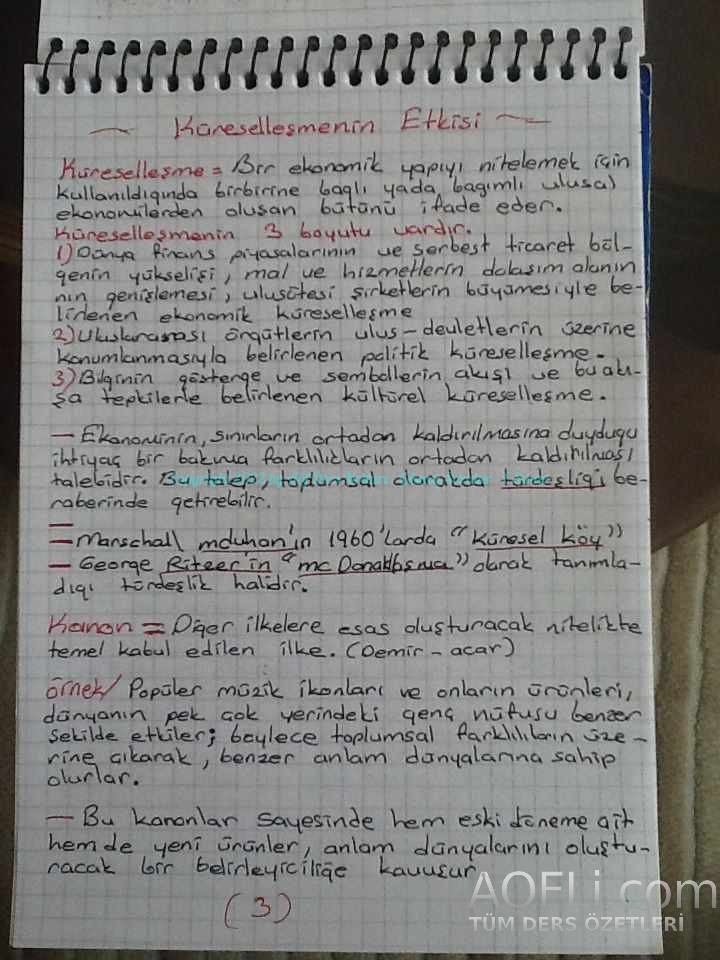 Küreselleşmenin Etkisi
Küreselleşme = Bir ekonomik yapıyı nitelemek için
kullanıldığında birbirine bağlı yada bağımlı ulusal
ekonomilerden oluşan bütünü ifade eder.
Küreselleşmenin 3 boyutu vardır.
1) Dünya finans piyasalarının ve serbest ticaret böl-
genin yükselişi, mal ve hizmetlerin dolaşım alanın
nın genişlemesi, ulusötesi şirketlerin büyümesiyle be-
lirlenen ekonomik küreselleşme
2) Uluslararası örgütlerin ulus-devletlerin üzerine
konumlanmasıyla belirlenen politik küreselleşme.
3) Bilginin gösterge ve sembollerin akışı ve bu akı-
şa tepkilerle belirlenen kültürel küreselleşme.
— Ekonominin, sınırların ortadan kaldırılmasına duyduğu
ihtiyaç bir bakıma farklılıkların ortadan kaldırılması
talebidir. Bu talep, toplumsal olarakda türdeşliği be-
raberinde getirebilir.
— Marschall mcluhan'ın 1960'larda "Küresel köy"
— George Ritzer'in "mc Donaldlaşma" olarak tanımla-
dığı türdeşlik halidir.
Kanon = Diğer ilkelere esas oluşturacak nitelikte
temel kabul edilen ilke. (Demir-acar)
örnek/ Popüler müzik ikonları ve onların ürünleri,
dünyanın pek çok yerindeki genç nüfusu benzer
şekilde etkiler; böylece toplumsal farklılıkların üze-
rine çıkarak, benzer anlam dünyalarına sahip
olurlar.
— Bu kanonlar sayesinde hem eski döneme ait
hem de yeni ürünler, anlam dünyalarını oluştu-
racak bir belirleyiciliğe kavuşur
(3)
AOFLi.com
TÜM DERS ÖZETLERİ